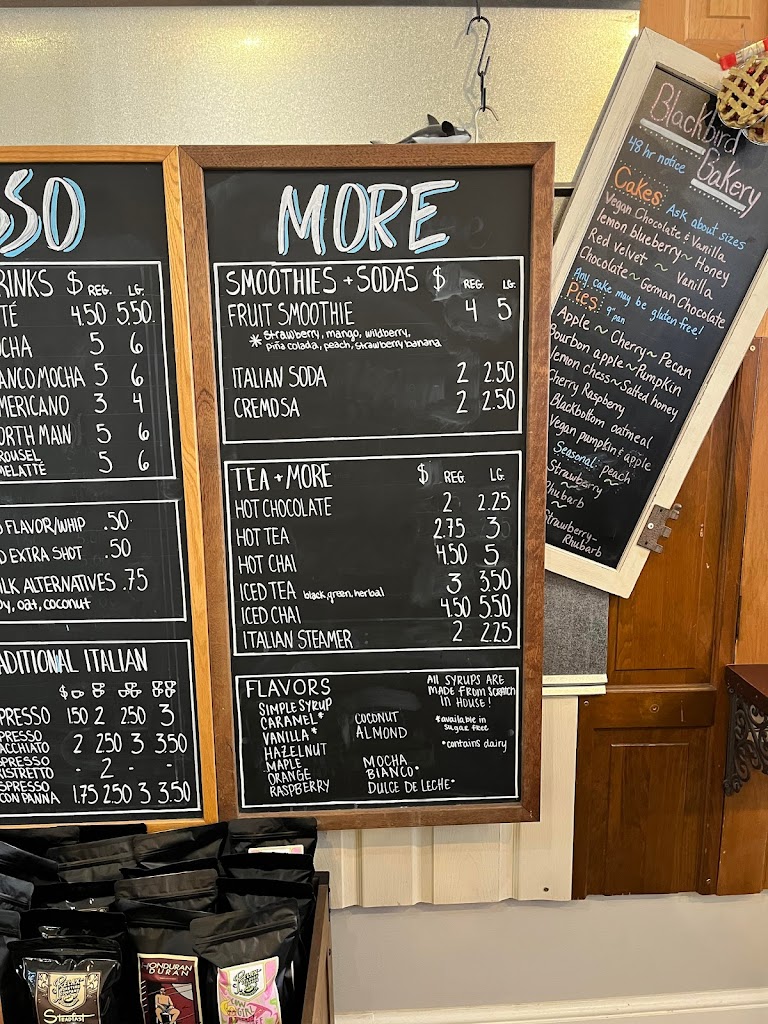 SSO
RINKS $ REG. LG.
TÉ 4.50 5.50
OCHA 5 6
ANCO MOCHA 5 6
MERICANO 3 4
ORTH MAIN 5 6
ROUSEL
MELATTÉ 5 6
D FLAVOR/WHIP .50
D EXTRA SHOT .50
ILK ALTERNATIVES .75
oy, oat, coconut
ADITIONAL ITALIAN
$
PRESSO 1.50 2 2.50 3
PRESSO
ACCHIATO 2 2.50 3 3.50
SPRESSO
RISTRETTO - 2 - -
SPRESSO
CON PANNA 1.75 2.50 3 3.50
MORE
SMOOTHIES + SODAS $ REG. LG.
FRUIT SMOOTHIE 4 5
* strawberry, mango, wildberry,
piña colada, peach, strawberry banana
ITALIAN SODA 2 2.50
CREMOSA 2 2.50
TEA + MORE $ REG. LG.
HOT CHOCOLATE 2 2.25
HOT TEA 2.75 3
HOT CHAI 4.50 5
ICED TEA black, green, herbal 3 3.50
ICED CHAI 4.50 5.50
ITALIAN STEAMER 2 2.25
FLAVORS
SIMPLE SYRUP
CARAMEL*
VANILLA*
HAZELNUT
MAPLE
ORANGE
RASPBERRY
COCONUT
ALMOND
MOCHA
BIANCO*
DULCE DE LECHE*
All SYRUPS ARE
MADE FROM SCRATCH
IN HOUSE!
*available in
sugar free
*contains dairy
Blackbird
Bakery
48 hr notice
Cakes: Ask about sizes
Vegan Chocolate & Vanilla
lemon blueberry ~ Honey
Red velvet ~ Vanilla
Chocolate ~ German Chocolate
Any cake may be gluten free!
Pies: 9" pan
Apple ~ Cherry ~ Pecan
Bourbon apple ~ Pumpkin
lemon Chess ~ Salted honey
Cherry Raspberry
Blackbottom oatmeal
Vegan pumpkin & apple
Seasonal: peach
Strawberry
Rhubarb
Strawberry-
Rhubarb
HONDURAN
DURAN
Steadfast
COW
GIRL